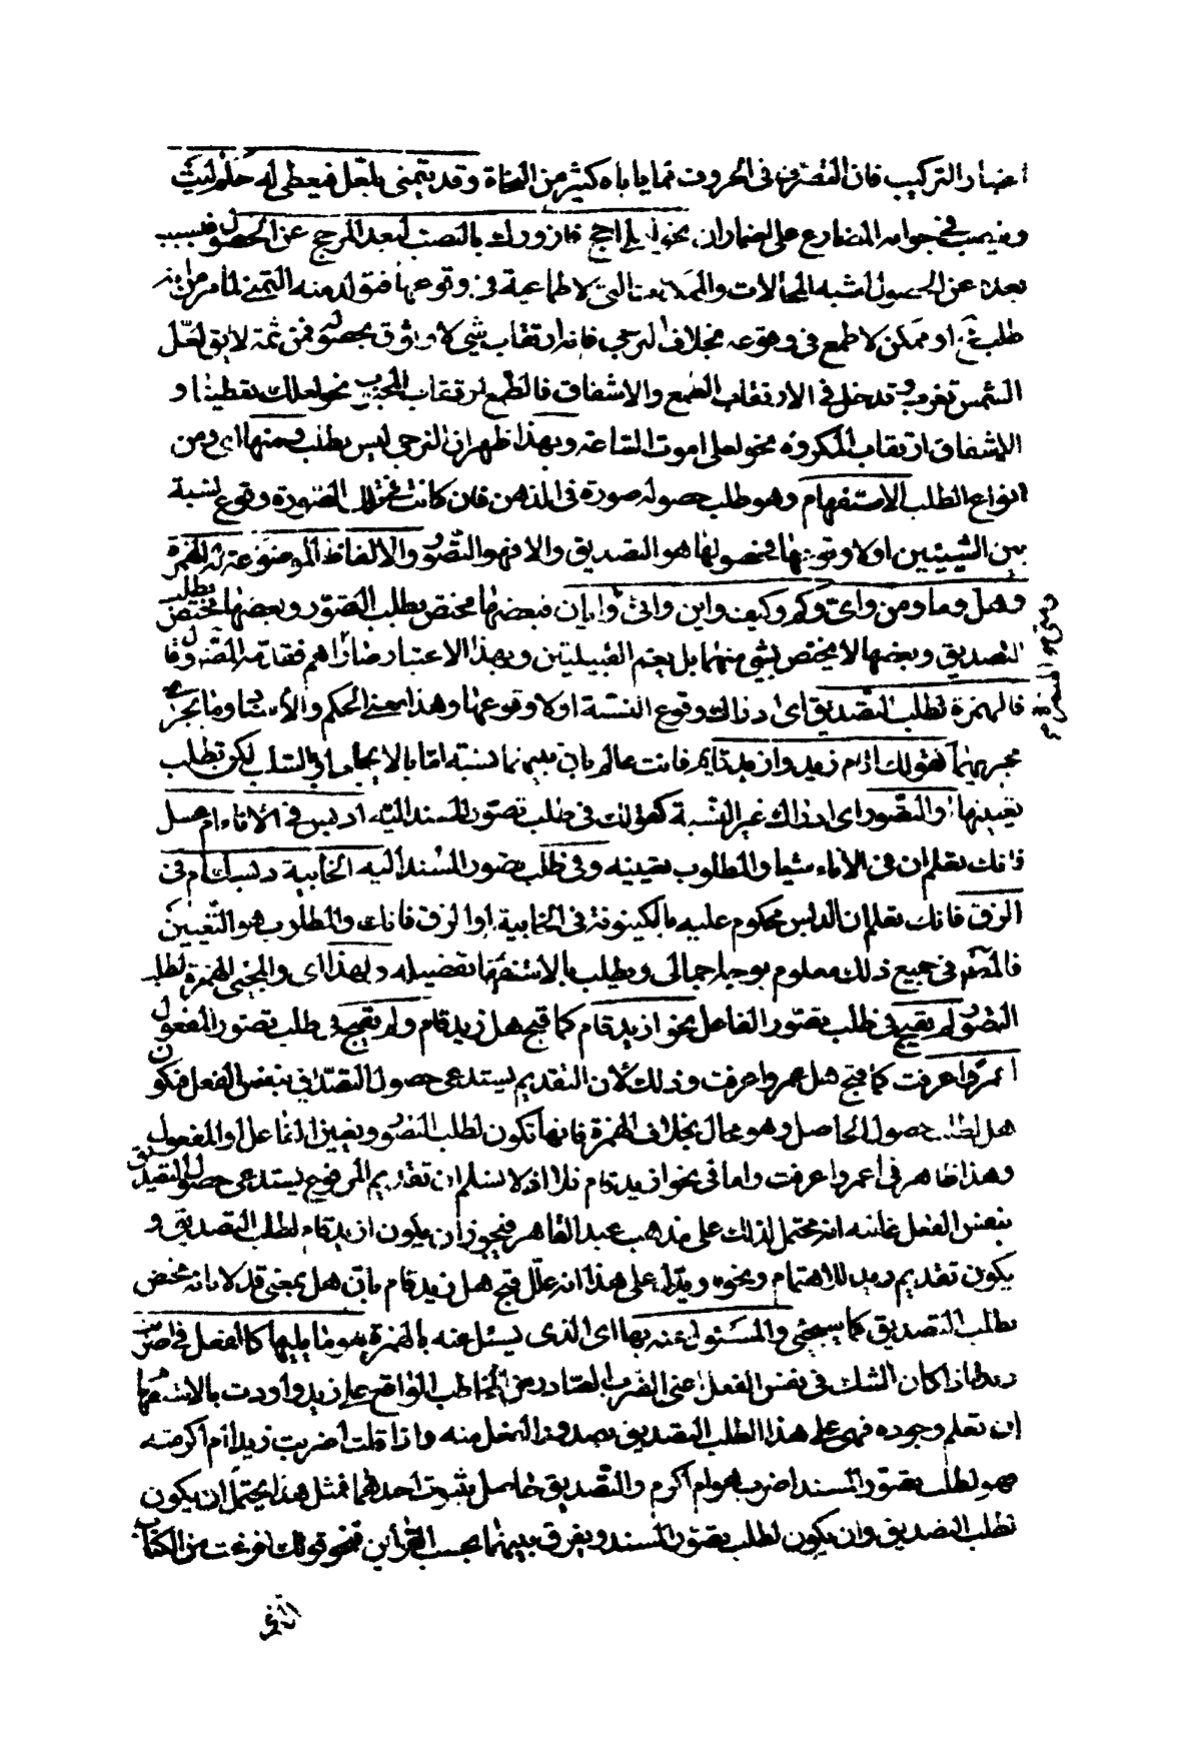 التركيب فان التصرف فى الحروف مما ياباه كثير من النحاة وقد يتمنى بلعل فيعطى له حكم ليت
وينصب فى جوابه المضارع على اضمار ان نحو لعلى احج فازورك بالنصب لبعد المرجو عن الحصول فبسبب
بعده عن الحصول اشبه المحالات والممكنات التى لا طماعية فى وقوعها فتولد منه التمنى لما مر من انه
طلب محال او ممكن لا طمع فى وقوعه بخلاف الترجى فانه ارتقاب شئ لا وثوق بحصوله فمن ثمة لا يق لعل
الشمس تغرب وقد دخل فى الارتقاب الطمع والاشفاق فالطمع ارتقاب المحبوب نحو لعلك تعطينا و
الاشفاق ارتقاب المكروه نحو لعلى اموت الساعة وبهذا ظهر ان الترجى ليس بطلب ومنها اى ومن
انواع الطلب الاستفهام وهو طلب حصول صورة فى الذهن فان كانت تلك الصورة وقوع نسبة
بين الشيئين او لا وقوعها فحصولها هو التصديق والا فهو التصور والالفاظ الموضوعة له الهمزة
وهل وما ومن واى وكم وكيف واين وانى وايان فبعضها مختص بطلب التصور وبعضها مختص بطلب
التصديق وبعضها لا يختص بشئ منهما بل يعم القبيلتين وبهذا الاعتبار صار اهم فقدمه المص وقال
فالهمزة لطلب التصديق اى ادراك وقوع النسبة او لا وقوعها وهذا معنى الحكم والاسناد وما يجرى
مجريهما كقولك اقام زيد وازيد قايم فانت عالم بان بينهما نسبة اما بالايجاب او السلب لكن تطلب
تعيينها والتصور اى ادراك غير النسبة كقولك فى طلب تصور المسند اليه ادبس فى الاناء ام عسل
فانك تعلم ان فى الاناء شيا والمطلوب تعيينه وفى طلب تصور المسند أفى الخابية دبسك ام فى
الزق فانك تعلم ان الدبس محكوم عليه بالكينونة فى الخابية او الزق والمطلوب هو التعيين
فى جميع ذلك معلوم بوجه اجمالى ويطلب بالاستفهام تفصيله ولهذا اى ولمجئ الهمزة لطلب
التصور لم يقبح فى طلب تصور الفاعل نحو ازيد قام كما قبح هل زيد قام ولم يقبح فى طلب تصور المفعول
أعمروا عرفت كما قبح هل عمروا عرفت وذلك لان التقديم يستدعى حصول التصديق بنفس الفعل فيكون
هل لطلب حصول الحاصل وهو محال بخلاف الهمزة فانها تكون لطلب التصور وتعيين الفاعل او المفعول
وهذا ظاهر فى أعمروا عرفت واما فى نحو ازيد قام فلا اذ لا نسلم ان تقديم المرفوع يستدعى حصول التصديق
بنفس الفعل غايته انه محتمل لذلك على مذهب عبد القاهر فيجوز ان يكون ازيد قام لطلب التصديق و
يكون تقديم زيد للاهتمام ونحوه ويدل على هذا انه علل قبح هل زيد قام بان هل بمعنى قد لا بانه مختص
بطلب التصديق كما سيجئ والمسئول عنه بها اى الذى يسئل عنه بالهمزة هو ما يليها كالفعل فى اضربت
زيدا اذا كان الشك فى نفس الفعل اعنى الضرب الصادر من المخاطب الواقع على زيد واردت بالاستفهام
ان تعلم وجوده فهى على هذا لطلب التصديق بصدور الفعل منه واذا قلت اضربت زيدا ام اكرمته
فهو لطلب تصور المسند اضرب هو ام اكرم والتصديق حاصل بثبوت احدهما فمثل هذا يحتمل ان يكون
لطلب التصديق وان يكون لطلب تصور المسند ويفرق بينهما بحسب القراين فنحو قولك افرغت من الكتاب